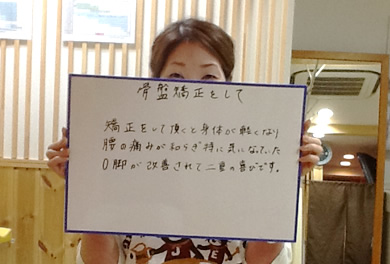 骨盤矯正をして
矯正をして頂くと身体が軽くなり
腰の痛みが和らぎ特に気になっていた
O脚が改善されて二重の喜びです。